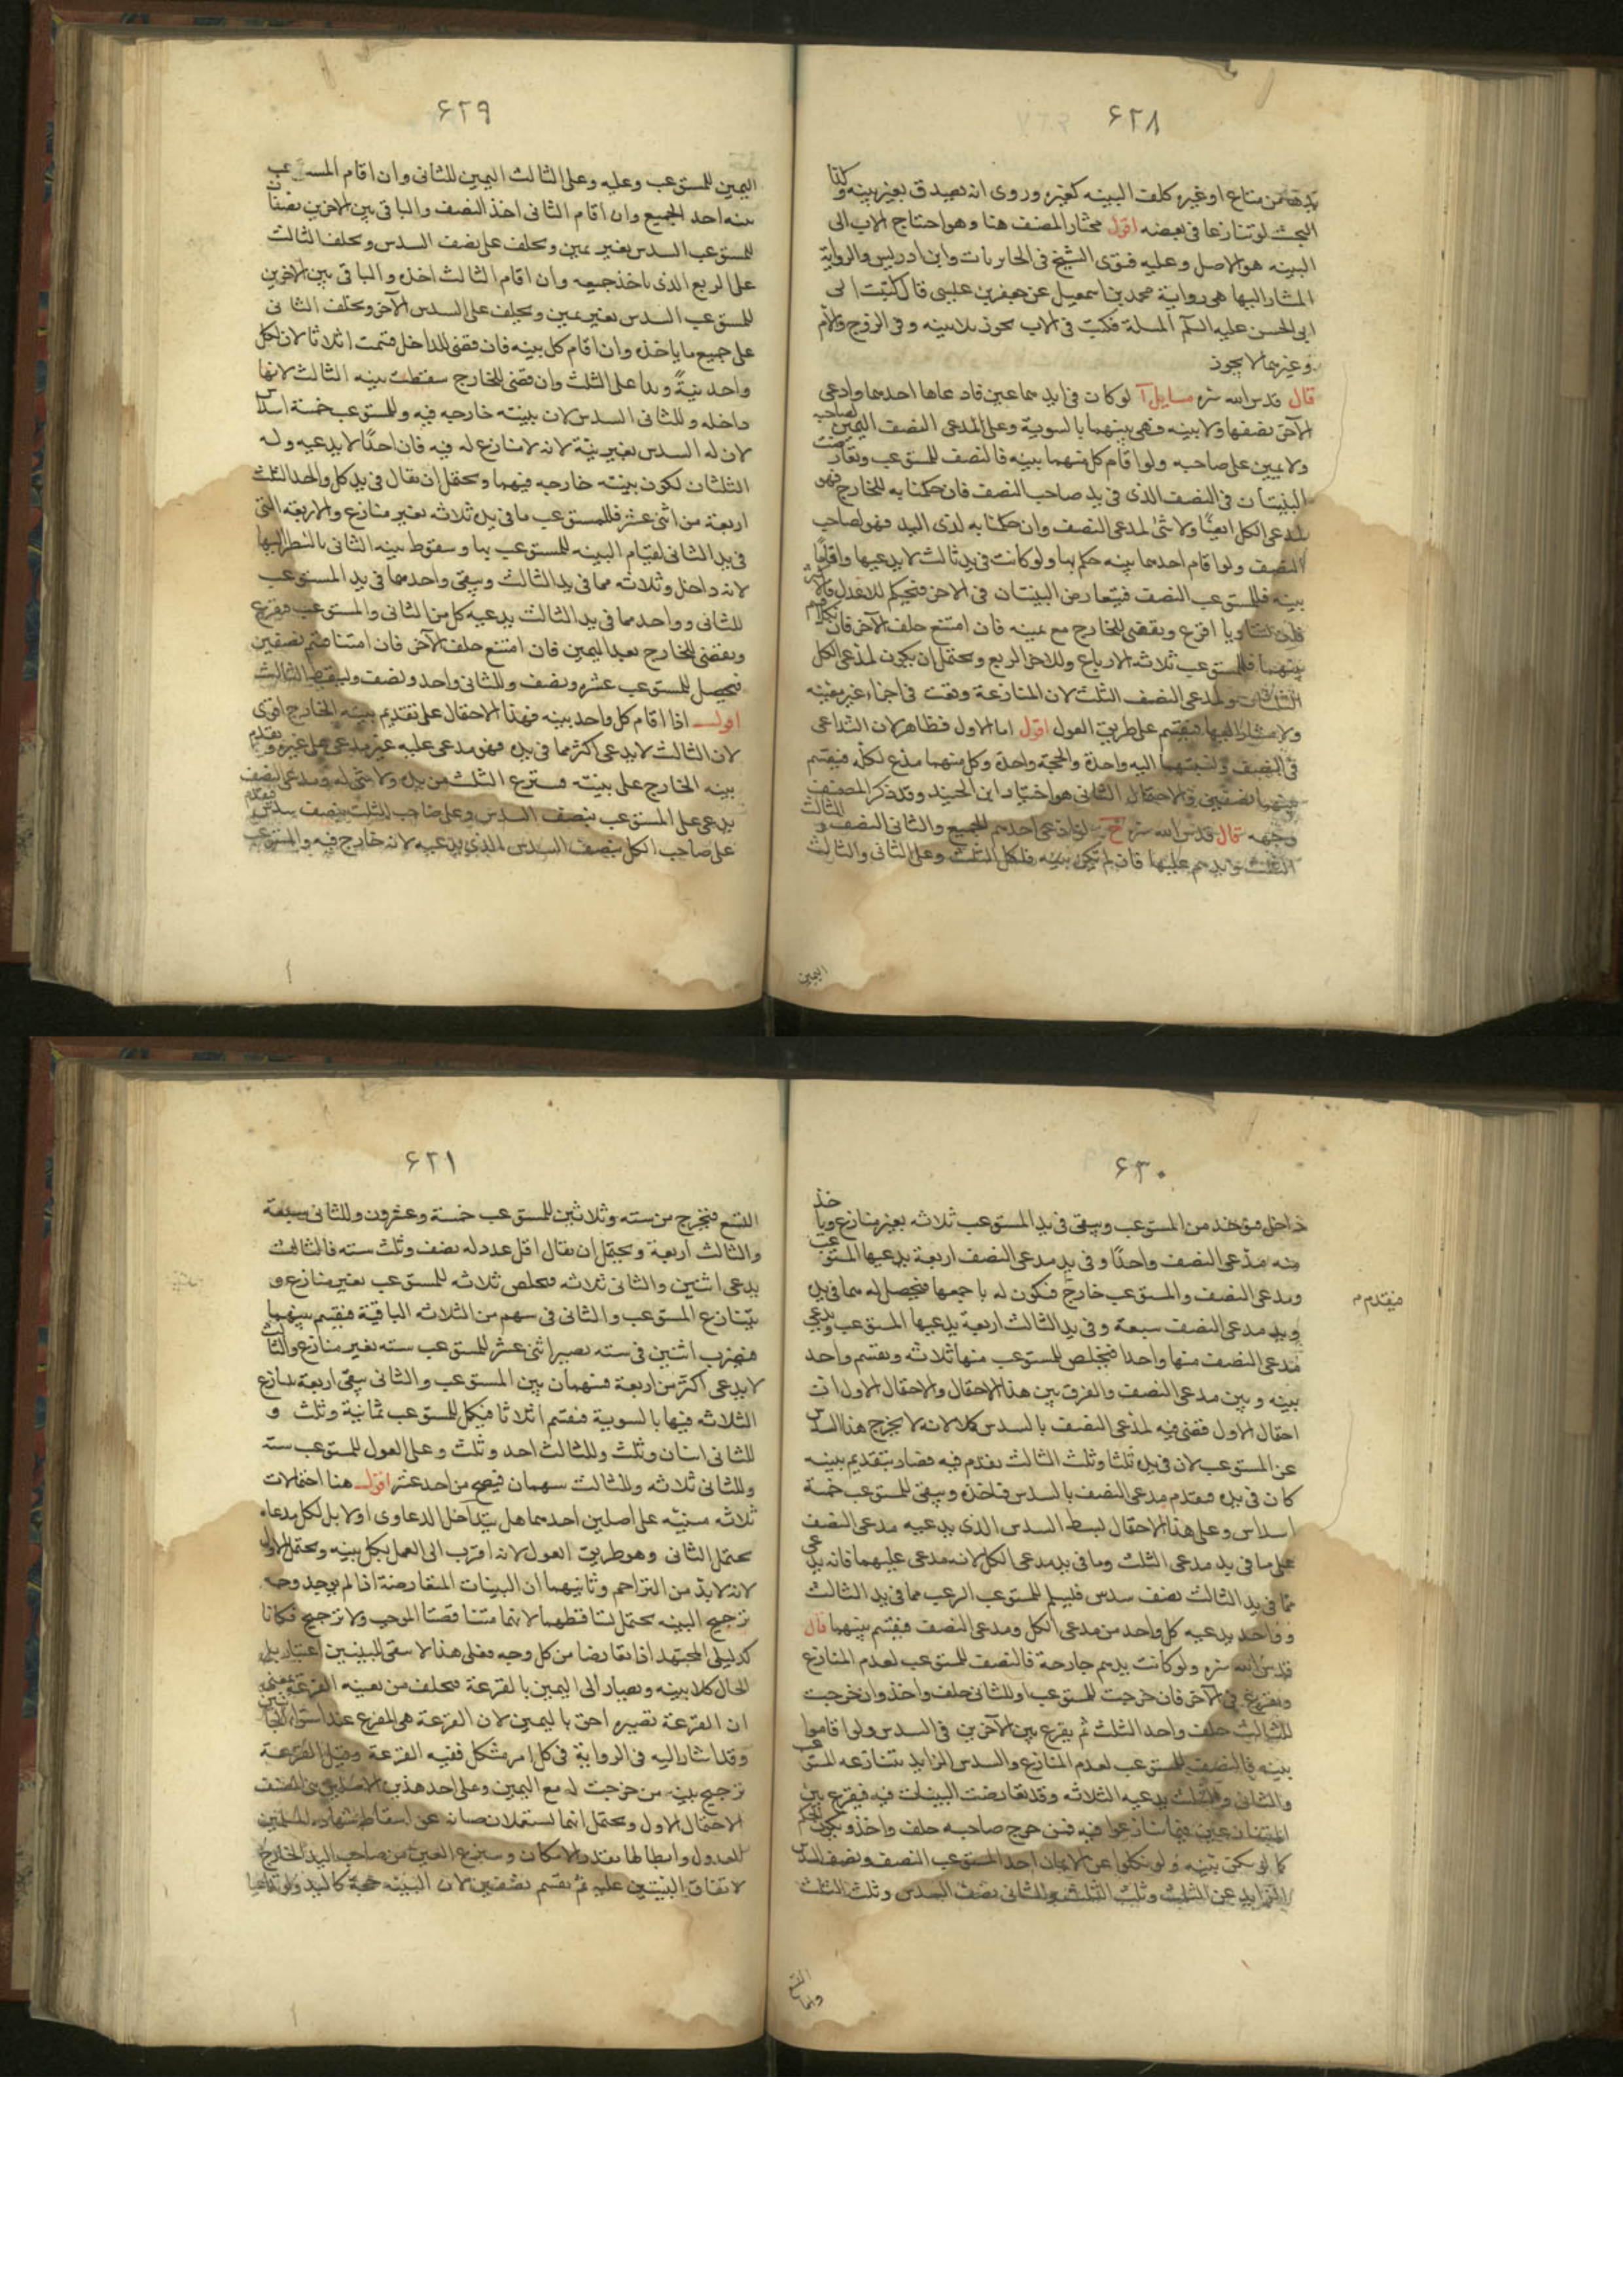 ۶۲۸
يدها من متاع او غيره كلف البينه كغيره وروى انه يصدق بغير بينه وكذا
البحث لو تنازعا فى بعضه اقول مختار المصنف هنا وهو احتاج الاب الى
البينه هو الاصل وعليه فتوى الشيخ فى الحايريات وابن ادريس والرواية
المشار اليها هى رواية محمد بن اسمعيل عن جعفر بن عيسى قال كتبت الى
ابى الحسن عليه السلم المسلة فكتب فى الاب يجوز بلا بينه وفى الزوج والام
وغيرهما لا يجوز
قال قدس الله سره مسايل آ لو كان فى ايديهما عين فادعاها احدهما وادعى
الآخر نصفها ولا بينه فهى بينهما بالسوية وعلى المدعى النصف اليمين لصاحبه
ولا يمين على صاحبه ولو اقام كل منهما بينه فالنصف للمستوعب وتعارضت
البينتان فى النصف الذى فى يد صاحب النصف فان حكمنا به للخارج فهو
لمدعى الكل ايضًا ولا شئ لمدعى النصف وان حكمنا به لذى اليد فهو لصاحب
النصف ولو اقام احدهما بينه حكم بها ولو كانت فى يد ثالث لا يدعيها واقاما
بينه فللمستوعب النصف فيتعارض البينتان فى الاخر فيحكم للاعدل فالاكثر
فان تساويا اقرع ويقضى للخارج مع يمينه فان امتنع حلف الآخر فان نكلا قسم
بينهما فللمستوعب ثلاثة الارباع وللاخر الربع ويحتمل ان يكون لمدعى الكل
الثلثان ولمدعى النصف الثلث لان المنازعة وقعت فى اجزاء غير معينه
ولا مشار اليها فيقسم على طريق العول اقول اما الاول فظاهر لان التداعى
فى النصف ونسبتهما اليه واحدة والحجة واحدة وكل منهما مدع لكله فيقسم
بينهما نصفين والاحتمال الثانى هو اختيار ابن الجنيد وقد ذكر المصنف
وجهه قال قدس الله سره لو ادعى احدهم الجميع والثانى النصف والثالث
الثلث ويدهم عليها فان لم تكن بينه فلكل الثلث وعلى الثانى والثالث
اليمين
۶۲۹
اليمين للمستوعب وعليه وعلى الثالث اليمين للثانى وان اقام المستوعب
بينه اخذ الجميع وان اقام الثانى اخذ النصف والباقى بين الاخرين نصفان
للمستوعب السدس بغير يمين ويحلف على نصف السدس ويحلف الثالث
على الربع الذى ياخذ جميعه وان اقام الثالث اخذه والباقى بين الاخرين
للمستوعب السدس بغير يمين ويحلف على السدس الآخر ويحلف الثانى
على جميع ما ياخذه وان اقام كل بينه فان قضى للداخل قسمت اثلاثا لان لكل
واحد بينةً ويدا على الثلث وان قضى للخارج سقطت بينه الثالث لانها
داخله وللثانى السدس لان بينته خارجه فيه وللمستوعب خمسة اسداس
لان له السدس بغير بينة لانه لا منازع له فيه فان احدًا لا يدعيه وله
الثلثان لكون بينته خارجه فيهما ويحتمل ان يقال فى يد كل واحد الثلث
اربعة من اثنى عشر فللمستوعب ما فى يده ثلاثه بغير منازع والاربعة التى
فى يد الثانى لقيام البينه للمستوعب بها وسقوط بينه الثانى بالنظر اليها
لانه داخل وثلاثه مما فى يد الثالث ويبقى واحد مما فى يد المستوعب
للثانى وواحد مما فى يد الثالث يدعيه كل من الثانى والمستوعب فيقرع
ويقضى للخارج بعد اليمين فان امتنع حلف الآخر فان امتنعا قسم نصفين
فيحصل للمستوعب عشره ونصف وللثانى واحد ونصف ويسقط الثالث
اقول اذا اقام كل واحد بينه فهذا الاحتمال على تقديم بينه الخارج اقوى
لان الثالث لا يدعى اكثر مما فى يده فهو مدعى عليه غير مدعى على غيره وتقدم
بينه الخارج على بينته فينتزع الثلث من يده ولا شئ له ومدعى النصف
يدعى على المستوعب بنصف السدس وعلى صاحب الثلث بنصف سدس فيقدم
على صاحب الكل بنصف السدس الذى يدعيه لانه خارج فيه والمستوعب
۶۳۰
داخل فيؤخذ من المستوعب ويبقى فى يد المستوعب ثلاثه بغير منازع وياخذ
منه مدعى النصف واحدًا وفى يد مدعى النصف اربعة يدعيها المستوعب
ومدعى النصف والمستوعب خارج فيكون له باجمعها فيحصل له مما فى يده
ويد مدعى النصف سبعة وفى يد الثالث اربعة يدعيها المستوعب ويدعى
مدعى النصف منها واحدا فيخلص للمستوعب منها ثلاثه ويقسم واحد
بينه وبين مدعى النصف والفرق بين هذا الاحتمال والاحتمال الاول ان
احتمال الاول قضى فيه لمدعى النصف بالسدس كملا لانه لا يخرج هذا السدس
عن المستوعب لان فى يده ثلثا وثلث الثالث يقدم فيه فصار بتقديم بينه
كان فى يده فيقدم مدعى النصف بالسدس فاخذه ويبقى للمستوعب خمسة
اسداس وعلى هذا الاحتمال لبسط السدس الذى يدعيه مدعى النصف
على ما فى يد مدعى الثلث وما فى يد مدعى الكل لانه مدعى عليهما فانه يدعى
مما فى يد الثالث نصف سدس فليسلم للمستوعب الربع مما فى يد الثالث
وواحد يدعيه كل واحد من مدعى الكل ومدعى النصف فيقسم بينهما قال
قدس الله سره ولو كانت يدهم خارجة فالنصف للمستوعب لعدم المنازع
ويقرع فى الآخر فان خرجت للمستوعب او للثانى حلف واخذ وان خرجت
للثالث حلف واخذ الثلث ثم يقرع بين الآخرين فى السدس ولو اقاموا
بينه فالنصف للمستوعب لعدم المنازع والسدس الزايد يتنازعه المستوعب
والثانى والثلث يدعيه الثلاثه وقد تعارضت البينات فيه فيقرع بين
المتنازعين فيما تنازعوا فيه فمن خرج صاحبه حلف واخذ ويكون الحكم
كما لو لم تكن بينه ولو نكلوا عن الايمان اخذ المستوعب النصف ونصف السدس
الزايد عن الثلث وثلث الثلث وللثانى نصف السدس وثلث الثلث
فيقدم م
۶۲۱
التسع فتخرج من سته وثلاثين للمستوعب خمسة وعشرون وللثانى سبعة
والثالث اربعة ويحتمل ان يقال اقل عدد له نصف وثلث سته فالثالث
يدعى اثنين والثانى ثلاثه فيخلص ثلاثه للمستوعب بغير منازع و
يتنازع المستوعب والثانى فى سهم من الثلاثه الباقية فيقسم بينهما
فيضرب اثنين فى سته يصير اثنى عشر للمستوعب سته بغير منازع والثالث
لا يدعى اكثر من اربعة فسهمان بين المستوعب والثانى يبقى اربعة تنازع
الثلاثه فيها بالسوية فيقسم اثلاثا فيكمل للمستوعب ثمانية وثلث و
للثانى اثنان وثلث وللثالث احد وثلث وعلى العول للمستوعب سته
وللثانى ثلاثه وللثالث سهمان فيصح من احد عشر اقول هنا احتمالات
ثلاثه مبنيه على اصلين احدهما هل يتداخل الدعاوى اولا بل لكل مدعاه
يحتمل الثانى وهو طريق العول لانه اقرب الى العمل بكل بينه ويحتمل الاول
لانه لا بد من التزاحم وثانيهما ان البينات المتعارضة اذا لم يوجد وجه
ترجيح البينه يحتمل تساقطهما لانهما متناقضتا الموجب ولا ترجيح فكانا
كدليلى المجتهد اذا تعارضا من كل وجه فعلى هذا لا يبقى للبينتين اعتبار بل
الحال كلا بينه ويصار الى اليمين بالقرعة فيحلف من تعينه القرعة
ان القرعة تصيره احق باليمين لان القرعة هى المفزع عند استواء
وقد اشار اليه فى الرواية فى كل امر مشكل ففيه القرعة وقيل القرعة
ترجيح بينه من خرجت له مع اليمين وعلى احد هذين الاصلين بنى المصنف
الاحتمال الاول ويحتمل انهما يستعملان صيانه عن اسقاط شهاده المسلمين
العدول وابطالها بقدر الامكان وينتزع العين من صاحب اليد الخارج
لاتفاق البينتين عليه ثم يقسم نصفين لان البينه حجة كاليد ولو تداعيا